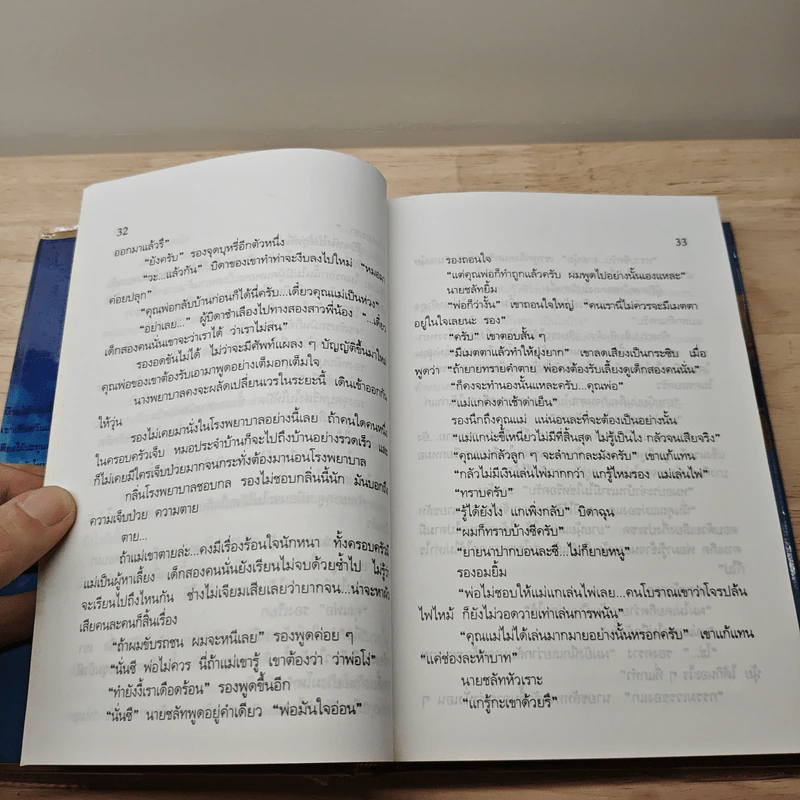 32
ออกมาแล้วรึ”
“ยังครับ” รองจุดบุหรี่อีกตัวหนึ่ง
“วะ...แล้วกัน” บิดาของเขาทำท่าจะงีบลงไปใหม่ “หมอมา
ค่อยปลุก”
“คุณพ่อกลับบ้านก่อนก็ได้นี่ครับ...เดี๋ยวคุณแม่เป็นห่วง”
“อย่าเลย...” ผู้บิดาชำเลืองไปทางสองสาวพี่น้อง “...เดี๋ยว
เด็กสองคนนั่นเขาจะว่าเราได้ ว่าเราไม่สน”
รองอดขันไม่ได้ ไม่ว่าจะมีศัพท์แผลง ๆ บัญญัติขึ้นมาใหม่
คุณพ่อของเขาต้องรับเอามาพูดอย่างเต็มอกเต็มใจ
นางพยาบาลคงจะผลัดเปลี่ยนเวรในระยะนี้ เดินเข้าออกกัน
ให้วุ่น
รองไม่เคยมานั่งในโรงพยาบาลอย่างนี้เลย ถ้าใคคนใดคนหนึ่ง
ในครอบครัวเจ็บ หมอประจำบ้านก็จะไปถึงบ้านอย่างรวดเร็ว และ
ก็ไม่เคยมีใครเจ็บป่วยมากจนกระทั่งต้องมานอนโรงพยาบาล
กลิ่นโรงพยาบาลชอบกล รองไม่ชอบกลิ่นนี้นัก มันบอกถึง
ความเจ็บป่วย ความตาย
ตาย...
ถ้าแม่เขาตายล่ะ...คงมีเรื่องร้อนใจนักหนา ทั้งครอบครัวมี
แม่เป็นผู้หาเลี้ยง เด็กสองคนนั่นยังเรียนไม่จบด้วยซ้ำไป ไม่รู้ว่า
จะเรียนไปถึงไหนกัน ช่างไม่เจียมเสียเลยว่ายากจน...น่าจะหา
เสียคนละคนก็สิ้นเรื่อง
“ถ้าผมขับรถชน ผมจะหนีเลย” รองพูดค่อย ๆ
“นั่นซี พ่อไม่ควร นี่ถ้าแม่เขารู้ เขาต้องว่า ว่าพ่อโง่”
“ทำยังงี้เราเดือดร้อน” รองพูดขึ้นอีก
“นั่นซี” นายชลัทพูดอยู่คำเดียว “พ่อมันใจอ่อน”
33
รองถอนใจ
“แต่คุณพ่อก็ทำถูกแล้วครับ ผมพูดไปอย่างนั้นเองแหละ”
นายชลัทยิ้ม
“พ่อก็ว่างั้น” เขาถอนใจใหญ่ “คนเรานี่ไม่ควรจะมีเมตตา
อยู่ในใจเลยนะ รอง”
“ครับ” เขาตอบสั้น ๆ
“มีเมตตาแล้วทำให้ยุ่งยาก” เขาลดเสียงเป็นกระซิบ เมื่อ
พูดว่า “ถ้ายายทรายคำตาย พ่อคงต้องรับเลี้ยงดูเด็กสองคนนั่น”
“ก็คงจะทำนองนั้นแหละครับ...คุณพ่อ”
“แม่แกคงด่าเช้าด่าเย็น”
รองนึกถึงคุณแม่ แน่นอนละที่จะต้องเป็นอย่างนั้น
“แม่แกน่ะขี้เหนียวไม่มีที่สิ้นสุด ไม่รู้เป็นไง กลัวจนเสียจริง”
“คุณแม่กลัวลูก ๆ จะลำบากละมังครับ” เขาแก้แทน
“กลัวไม่มีเงินเล่นไพ่มากกว่า แกรู้ไหมรอง แม่เล่นไพ่”
“ทราบครับ”
“รู้ได้ยังไง แกเพิ่งกลับ” บิดาฉุน
“ผมก็ทราบบ้างซีครับ”
“ยายนาปากบอนละซี...ไม่ก็ยายหนู”
รองอมยิ้ม
“พ่อไม่ชอบให้แม่แกเล่นไพ่เลย...คนโบราณเขาว่าโจรปล้น
ไฟไหม้ ก็ยังไม่วอดวายเท่าเล่นการพนัน”
“คุณแม่ไม่ได้เล่นมากมายอย่างนั้นหรอกครับ” เขาแก้แทน
“แค่ช่องละห้าบาท”
นายชลัทหัวเราะ
“แกรู้กะเขาด้วยรึ”